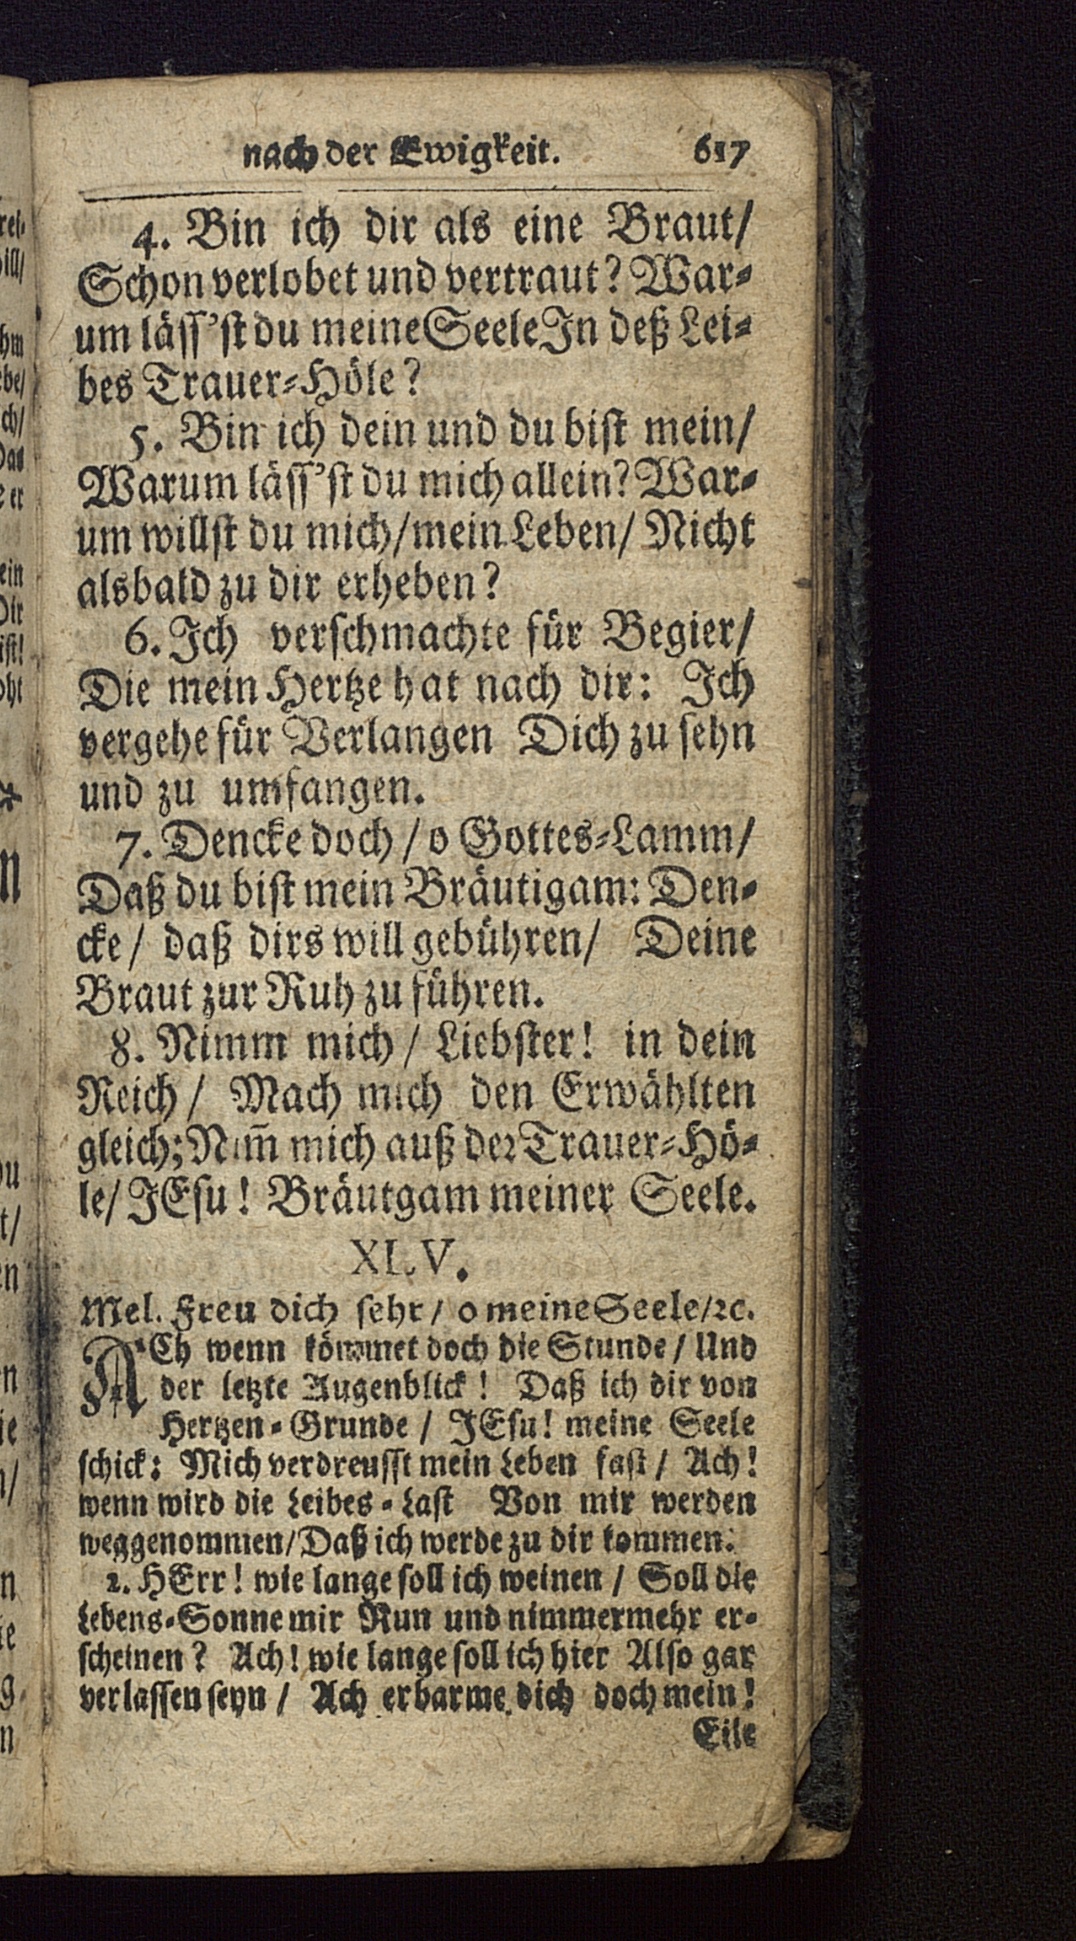 nach der Ewigkeit. 617
4. Bin ich dir als eine Braut/
Schon verlobet und vertraut? War-
um läss'st du meine Seele In deß Lei-
bes Trauer-Höle?
5. Bin ich dein und du bist mein/
Warum läss'st du mich allein? War-
um willst du mich/ mein Leben/ Nicht
alsbald zu dir erheben?
6. Ich verschmachte für Begier/
Die mein Hertze hat nach dir: Ich
vergehe für Verlangen Dich zu sehn
und zu umfangen.
7. Dencke doch / o Gottes-Lamm/
Daß du bist mein Bräutigam: Den-
cke/ daß dirs will gebühren/ Deine
Braut zur Ruh zu führen.
8. Nimm mich / Liebster! in dein
Reich / Mach mich den Erwählten
gleich; Nim̅ mich auß der Trauer-Hö-
le/ JEsu! Bräutgam meiner Seele.
XLV.
Mel. Freu dich sehr / o meine Seele/ꝛc.
ACh wenn kömmet doch die Stunde / Und
der letzte Augenblick! Daß ich dir von
Hertzen-Grunde / JEsu! meine Seele
schick: Mich verdreusst mein Leben fast / Ach!
wenn wird die Leibes-Last Von mir werden
weggenommen/ Daß ich werde zu dir kommen.
2. HErr! wie lange soll ich weinen / Soll die
Lebens-Sonne mir Nun und nimmermehr er-
scheinen? Ach! wie lange soll ich hier Also gar
verlassen seyn / Ach erbarme dich doch mein!
Eile